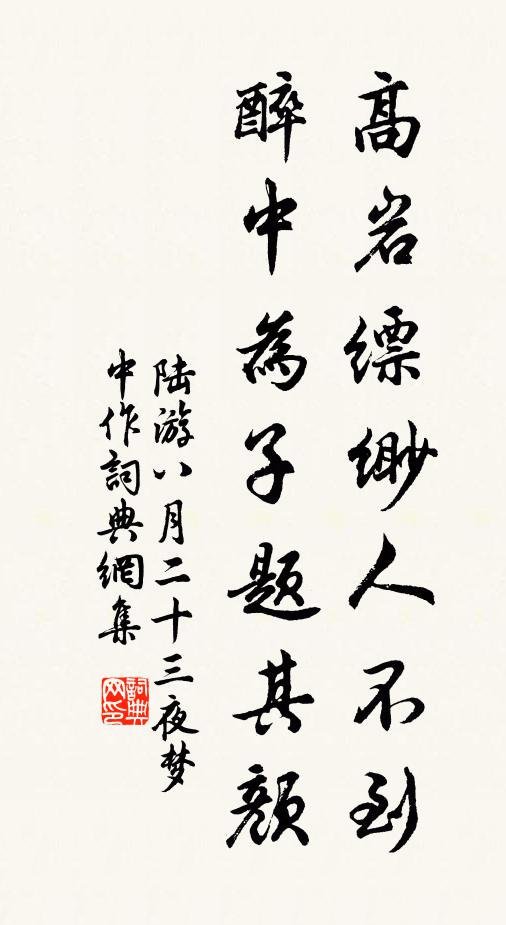 高岩縹緲人不到
醉中為子題其顏
陆游八月二十三夜梦
中作詞典網集
詞典网印